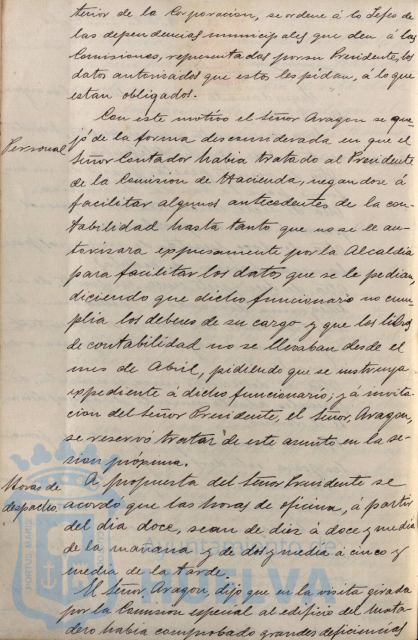 terior de la Corporacion, se ordene á lo Jefes de
las dependencias municipales que den á las
Comisiones, representadas por su Presidente, los
datos autorisados que estas les pidan, á lo que
estan obligados.
Personal
Con este motivo el señor Aragon se que
jó de la forma desconsiderada en que el
Señor Contador habia tratado al Presidente
de la Comision de Hacienda, negandose á
facilitar algunos antecedentes de la con-
tabilidad hasta tanto que no se le au-
torisara expresamente por la Alcaldia
para facilitar los datos que se le pedian,
diciendo que dicho funcionario no cum-
plia los deberes de su cargo y que los libros
de contabilidad no se llevaban desde el
mes de Abril, pidiendo que se instruya
expediente á dicho funcionario; y á invita
cion del Señor Presidente, el señor, Aragon,
se reservó tratar de este asunto en la se-
sion próxima.
Horas de
despacho.
A propuesta del Señor Presidente se
acordó que las horas de oficina, á partir
del dia doce, sean de diez á doce y media
de la mañana y de dos y media á cinco y
media de la tarde.
El Señor Aragon, dijo que en la visita girada
por la Comision especial al edificio del Mata-
dero habia comprobado grandes deficiencias
PORTUS MARIS
Ayuntamiento de
HUELVA